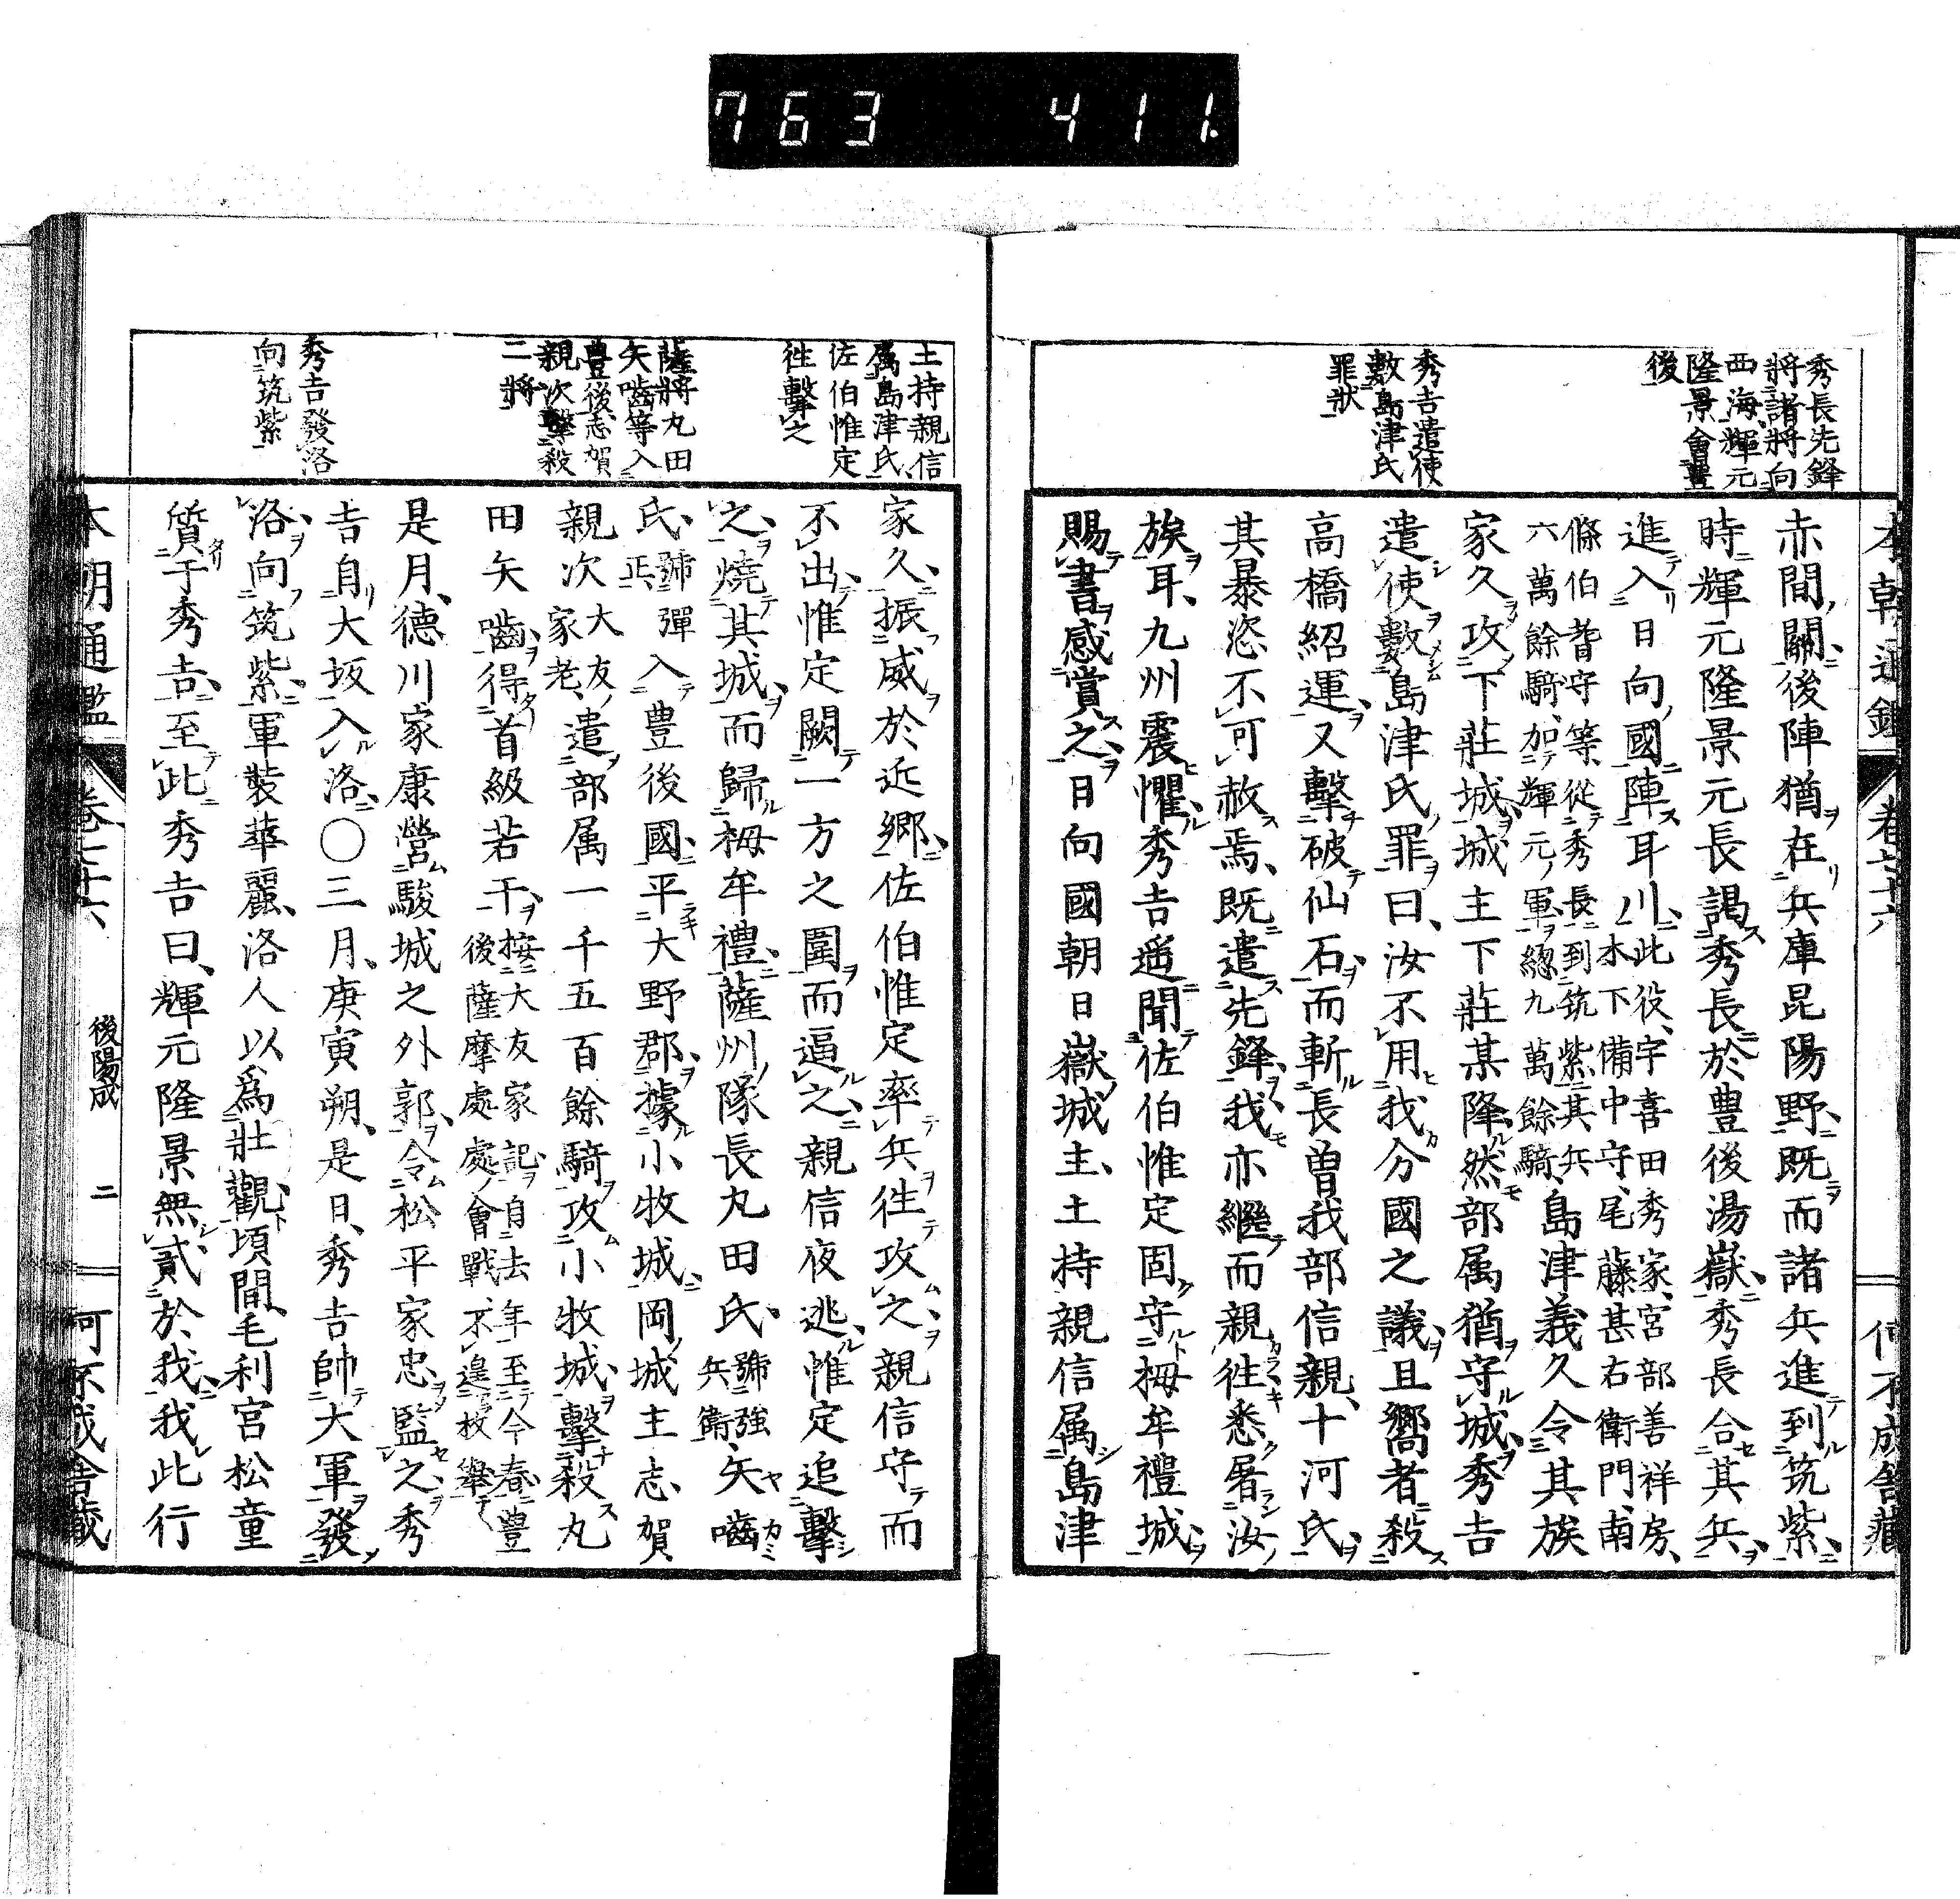 763 411.
本朝通鑑 卷七十六 何不成舍藏
秀長先鋒
將諸將向
西海輝元
隆景會豊
後
秀吉遣使
數島津氏
罪狀
赤間關後陣猶在兵庫昆陽野既而諸兵進到筑紫
時輝元隆景元長謁秀長於豊後湯嶽秀長合其兵
進入日向國陣耳川此役宇喜田秀家宮部善祥房
木下備中守尾藤甚右衛門南
條伯耆守等從秀長到筑紫其兵
六萬餘騎加輝元軍總九萬餘騎島津義久令其族
家久攻下莊城城主下莊某降然部属猶守城秀吉
遣使數島津氏罪曰汝不用我分國之議且嚮者殺
高橋紹運又擊破仙石而斬長曽我部信親十河氏
其暴恣不可赦焉既遣先鋒我亦繼而親徃悉屠汝
族耳九州震懼秀吉遥聞佐伯惟定固守栂牟禮城
賜書感賞之日向國朝日嶽城主土持親信属島津
土持親信
属島津氏
佐伯惟定
徃擊之
薩將丸田
矢嚙等入
豊後志賀
親次擊殺
二將
秀吉發洛
向筑紫
家久振威於近郷佐伯惟定率兵徃攻之親信守而
不出惟定闕一方之圍而逼之親信夜逃惟定追擊
之燒其城而歸栂牟禮薩州隊長丸田氏號強兵衛矢嚙
氏號彈正入豊後國平大野郡據小牧城岡城主志賀
親次大友家老遣部属一千五百餘騎攻小牧城擊殺丸
田矢嚙得首級若干按大友家記自去年至今春豊
後薩摩處處會戰不遑枚擧
是月德川家康營駿城之外郭令松平家忠監之秀
吉自大坂入洛〇三月庚寅朔是日秀吉帥大軍發
洛向筑紫軍裝華麗洛人以爲壯觀頃間毛利宮松童
質于秀吉至此秀吉曰輝元隆景無貳於我我此行
本朝通鑑 卷七十六 後陽成 二 何不成舍藏